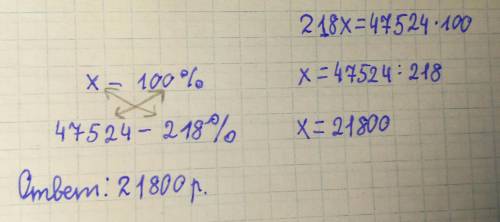 x – 100%
47524 – 218%
218x=47524·100
x=47524:218
x=21800
Ответ: 21800 р.